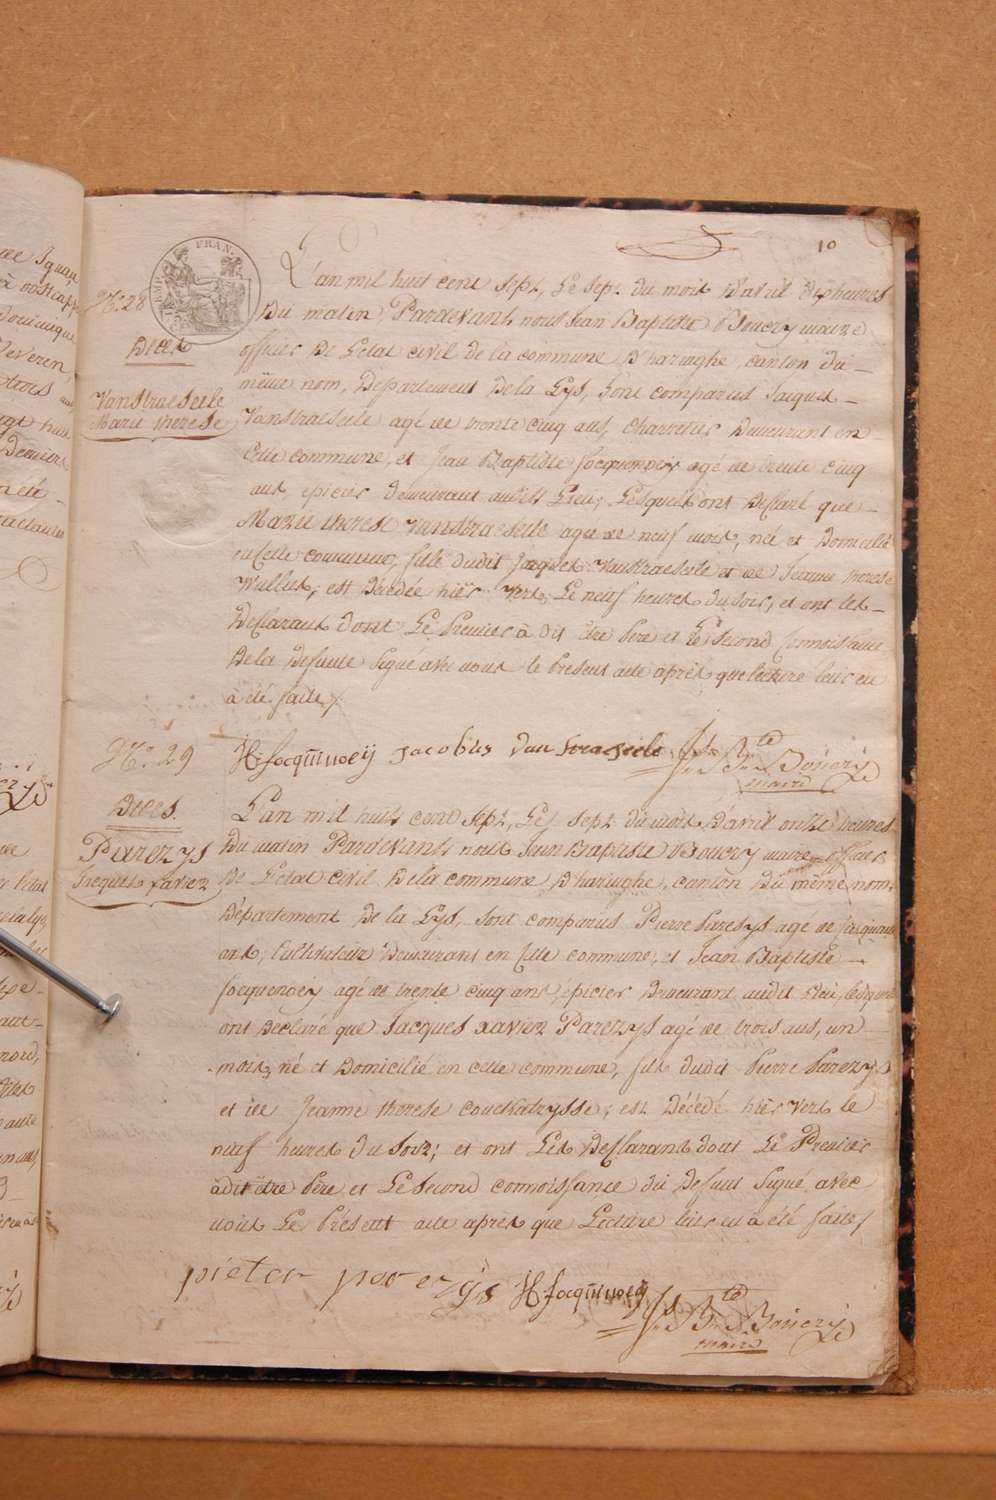 10
EMP. FRAN.
N.o 28
Décès
Vanstraeseele
Marie therese
L'an mil huit cent sept, Le sept du mois d'avril dix heures
Du matin Pardevant nous Jean Baptiste Bouery maire
officier De L'etat civil de la commune D'haringhe, canton du
même nom, Departement De la Lys, sont comparus Jacques
Vanstraeseele agé de trente cinq ans, Charretier Demeurant en
Cette commune, et Jean Baptiste Jocquenoey agé de trente cinq
ans, epicier demeurant audit Lieu; Lesquels ont Déclaré que
Marie therese Vanstraeseele agée de neuf mois, né et Domicilié
en Cette commune, fille dudit Jacques Vanstraeseele et de Jeanne therese
Wullus, est Décédée hièr vers Le neuf heures du soir, et ont les
Déclarants dont Le Premier à dit être Père et Le second Connoissance
De la Defunte signé avec nous le Present acte après que lecture leur en
à été faite /.
H: Jocquenoeij Jacobus Van Straseele J. Bte Bouerÿ
maire
N.o 29
Décès.
Parezys
Jacques Xavier
L'an mil huit cent Sept, Le Sept du mois D'avril onze heures
Du matin Pardevant nous Jean Baptiste Bouery maire officier
De L'etat civil De la commune D'haringhe, canton Du même nom,
Département De la Lys, sont comparus Pierre Paresys agé de Cinquante
ans, Cultivateur Demeurant en Cette commune, et Jean Baptiste
Jocquenoey agé de trente cinq ans, épicier Demeurant audit Lieu, lesquels
ont Declaré que Jacques Xavier Parezys agé de trois ans, un
mois, né et Domicilié en cette commune, fils dudit Pierre Parezys
et de Jeanne therese Couckatrysse, est Décédé hièr vers le
neuf heures Du soir; et ont Les Déclarans dont Le Premier
à dit être Père et Le Second connoissance du Defunt signé avec
nous Le Présent acte après que Lecture leur en à été faite /
pieter parezÿs H Jocquenoeij
J. Bte Bouerÿ
maire